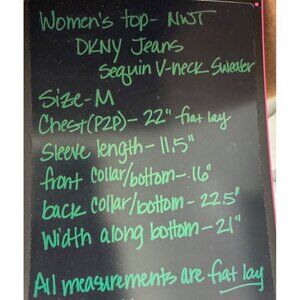 Women's top - NWT
DKNY Jeans
Sequin V-neck Sweater
Size - M
Chest (P2P) - 22" flat lay
Sleeve length - 11.5"
front collar/bottom - 16"
back collar/bottom - 22.5"
Width along bottom - 21"
All measurements are flat lay